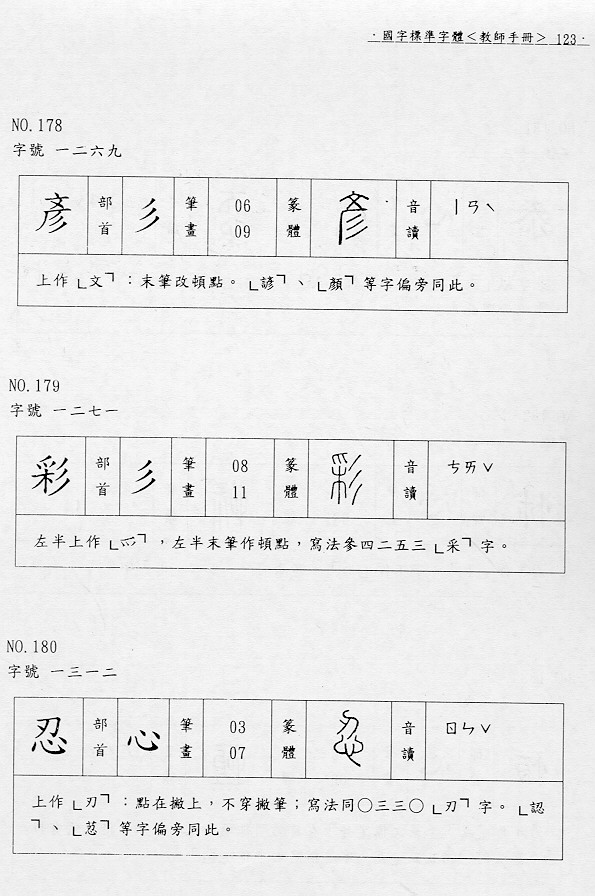 ·國字標準字體＜教師手冊＞ 123·
NO.178
字號 一二六九
彥 部首 彡 筆畫 06 09 篆體 彥 音讀 ㄧㄢˋ
上作「文」：末筆改頓點。「諺」、「顏」等字偏旁同此。
NO.179
字號 一二七一
彩 部首 彡 筆畫 08 11 篆體 彩 音讀 ㄘㄞˇ
左半上作「爫」，左半末筆作頓點，寫法參四二五三「采」字。
NO.180
字號 一三一二
忍 部首 心 筆畫 03 07 篆體 忍 音讀 ㄖㄣˇ
上作「刃」：點在撇上，不穿撇筆；寫法同○三三○「刃」字。「認
」、「荵」等字偏旁同此。